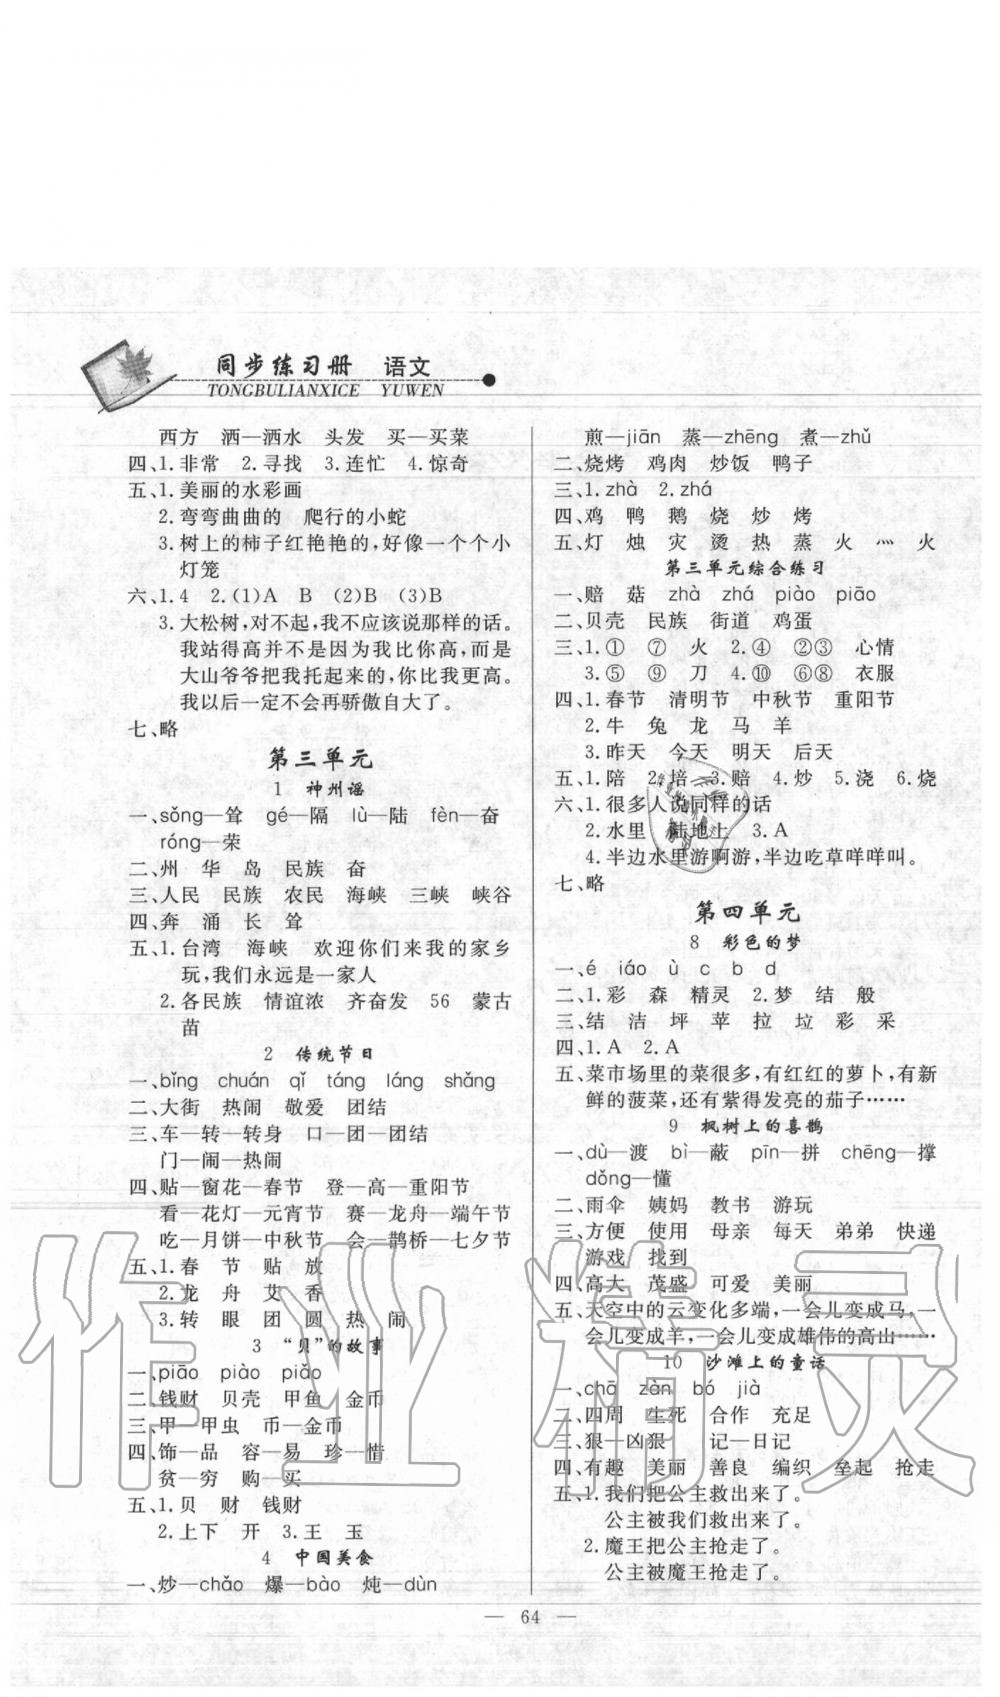 同步练习册 语文
TONGBULIANXICE YUWEN
西方 洒—洒水 头发 买—买菜
四、1.非常 2.寻找 3.连忙 4.惊奇
五、1.美丽的水彩画
2.弯弯曲曲的 爬行的小蛇
3.树上的柿子红艳艳的,好像一个个小
灯笼
六、1.4 2.(1)A B (2)B (3)B
3.大松树,对不起,我不应该说那样的话。
我站得高并不是因为我比你高,而是
大山爷爷把我托起来的,你比我更高。
我以后一定不会再骄傲自大了。
七、略
第三单元
1 神州谣
一、sǒng—耸 gé—隔 lù—陆 fèn—奋
róng—荣
二、州 华 岛 民族 奋
三、人民 民族 农民 海峡 三峡 峡谷
四、奔 涌 长 耸
五、1.台湾 海峡 欢迎你们来我的家乡
玩,我们永远是一家人
2.各民族 情谊浓 齐奋发 56 蒙古
苗
2 传统节日
一、bǐng chuán qǐ táng láng shǎng
二、大街 热闹 敬爱 团结
三、车—转—转身 口—团—团结
门—闹—热闹
四、贴—窗花—春节 登—高—重阳节
看—花灯—元宵节 赛—龙舟—端午节
吃—月饼—中秋节 会—鹊桥—七夕节
五、1.春 节 贴 放
2.龙 舟 艾 香
3.转 眼 团 圆 热 闹
3 “贝”的故事
一、piāo piào piǎo
二、钱财 贝壳 甲鱼 金币
三、甲—甲虫 币—金币
四、饰—品 容—易 珍—惜
贫—穷 购—买
五、1.贝 财 钱财
2.上下 开 3.王 玉
4 中国美食
一、炒—chǎo 爆—bào 炖—dùn
煎—jiān 蒸—zhēng 煮—zhǔ
二、烧烤 鸡肉 炒饭 鸭子
三、1.zhà 2.zhá
四、鸡 鸭 鹅 烧 炒 烤
五、灯 烛 灾 烫 热 蒸 火 灬 火
第三单元综合练习
一、赔 菇 zhà zhá piào piāo
二、贝壳 民族 街道 鸡蛋
三、1.① ⑦ 火 2.④ ②③ 心情
3.⑤ ⑨ 刀 4.⑩ ⑥⑧ 衣服
四、1.春节 清明节 中秋节 重阳节
2.牛 兔 龙 马 羊
3.昨天 今天 明天 后天
五、1.陪 2.培 3.赔 4.炒 5.浇 6.烧
六、1.很多人说同样的话
2.水里 陆地上 3.A
4.半边水里游啊游,半边吃草咩咩叫。
七、略
第四单元
8 彩色的梦
一、é iáo ù c b d
二、1.彩 森 精灵 2.梦 结 般
三、结 洁 坪 苹 拉 垃 彩 采
四、1.A 2.A
五、菜市场里的菜很多,有红红的萝卜,有新
鲜的菠菜,还有紫得发亮的茄子……
9 枫树上的喜鹊
一、dù—渡 bì—蔽 pīn—拼 chēng—撑
dǒng—懂
二、雨伞 姨妈 教书 游玩
三、方便 使用 母亲 每天 弟弟 快递
游戏 找到
四、高大 茂盛 可爱 美丽
五、天空中的云变化多端,一会儿变成马,一
会儿变成羊,一会儿变成雄伟的高山……
10 沙滩上的童话
一、chā zàn bó jià
二、四周 生死 合作 充足
三、狠—凶狠 记—日记
四、有趣 美丽 善良 编织 垒起 抢走
五、1.我们把公主救出来了。
公主被我们救出来了。
2.魔王把公主抢走了。
公主被魔王抢走了。
— 64 —
作业精灵